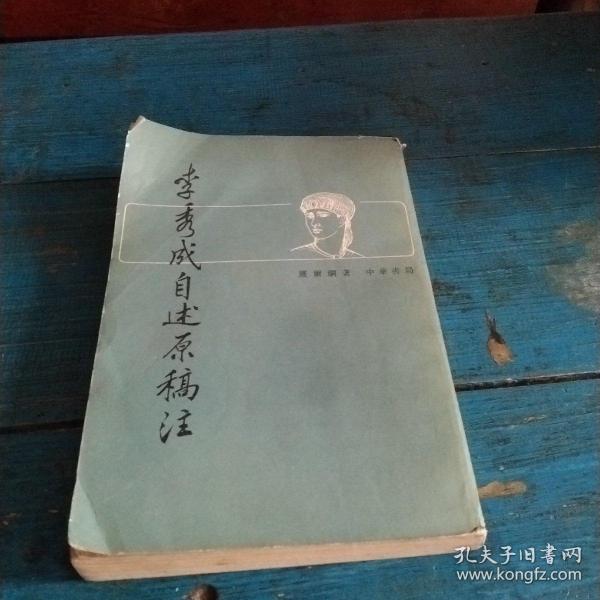 李秀成自述原稿注
羅爾綱著 中華書局
孔夫子旧书网
www.kongfz.com